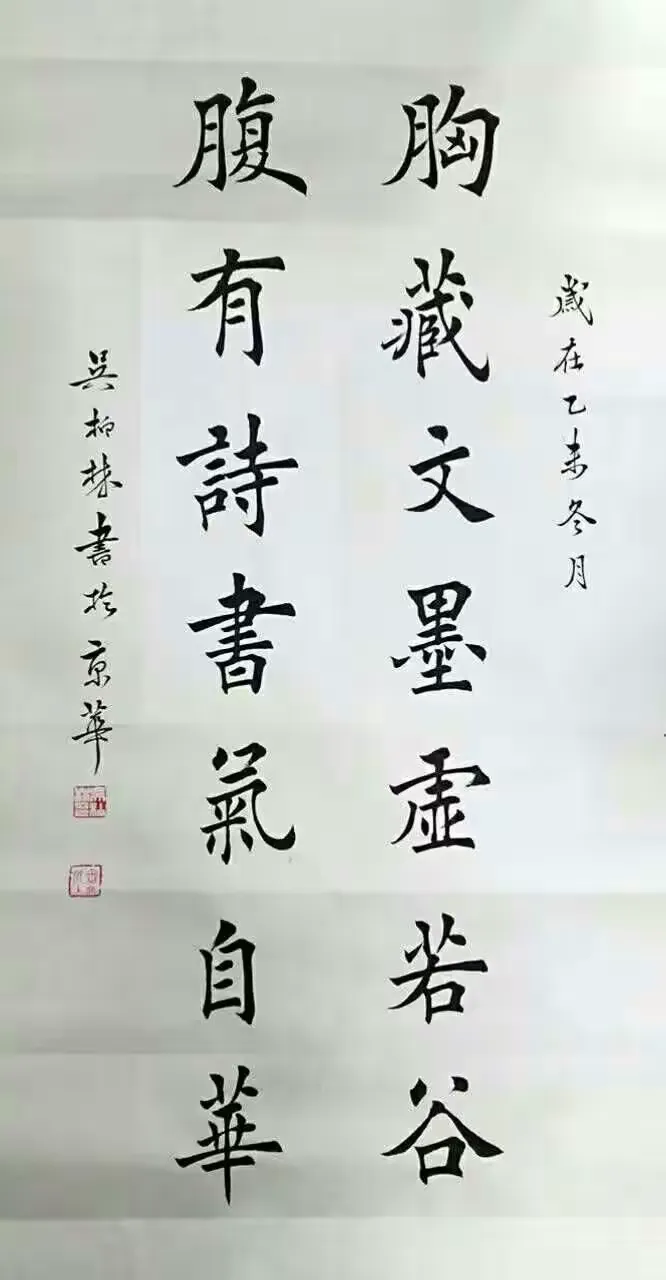 歲在乙未冬月
胸藏文墨虛若谷
腹有詩書氣自華
吳柳林書於京華